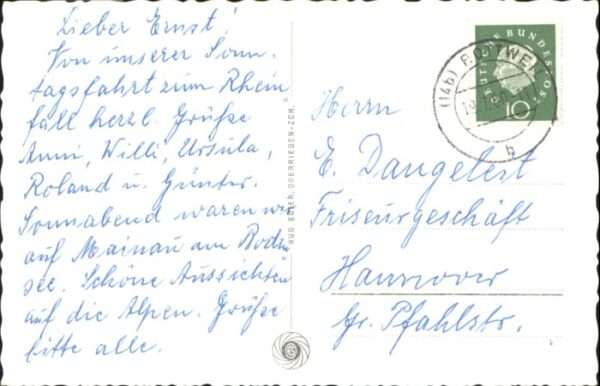 Lieber Ernst!
Von unserer Sonn-
tagsfahrt zum Rhein
fall herzl. Grüße
Anni, Willi, Ursula,
Roland u. Günter.
Sonnabend waren wir
auf Mainau am Boden
see. Schöne Aussichten
auf die Alpen. Grüße
bitte alle.
RUD. SUTER, OBERRIEDEN-ZCH.
DEUTSCHE BUNDESPOST
10
(14b) ROTTWEIL
b
Herrn
E. Dangelest
Friseurgeschäft
Hannover
Gr. Pfahlstr.